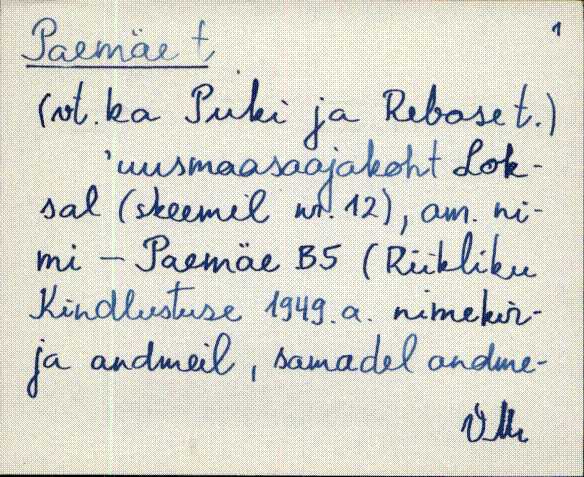 1
Paemäe t.
(vt. ka Puki ja Rebase t.)
'uusmaasaajakoht Lok-
sal (skeemil nr. 12), am. ni-
mi – Paemäe B5 (Riikliku
Kindlustuse 1949. a. nimekir-
ja andmeil, samadel andme-